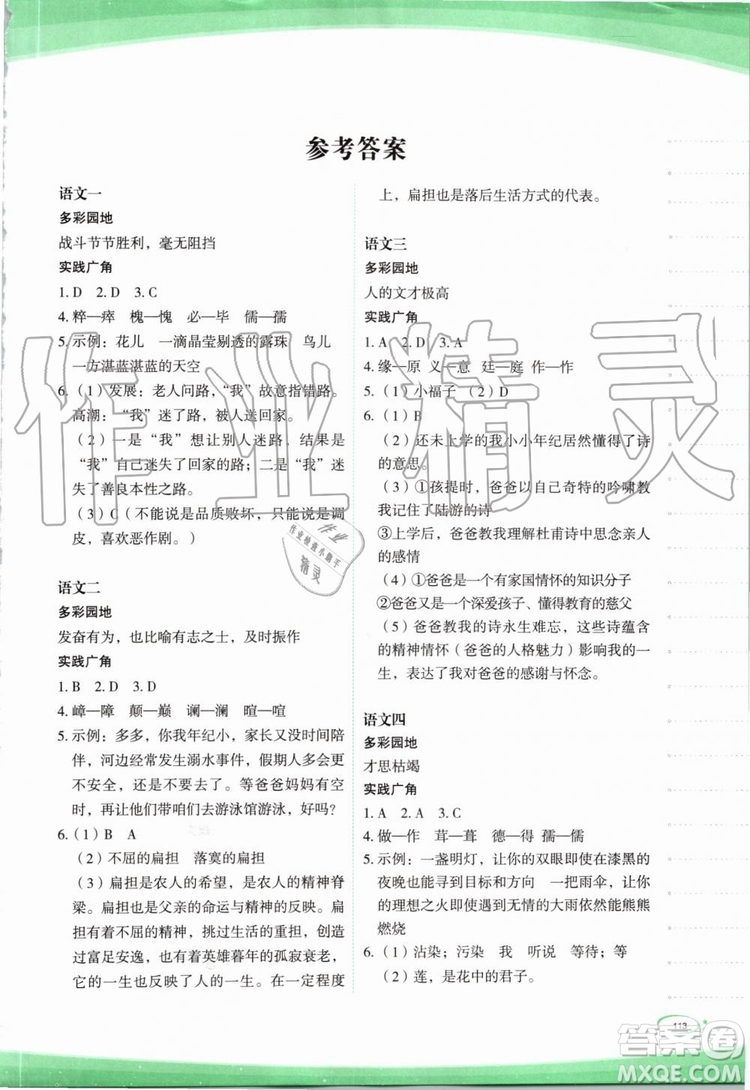 参考答案
语文一
多彩园地
战斗节节胜利，毫无阻挡
实践广角
1. D  2. D  3. C
4. 粹—瘁  槐—愧  必—毕  儒—孺
5. 示例：花儿  一滴晶莹剔透的露珠  鸟儿
一方湛蓝湛蓝的天空
6.（1）发展：老人问路，“我”故意指错路。
高潮：“我”迷了路，被人送回。
（2）一是“我”想让别人迷路，结果是
“我”自己迷失了回家的路；二是“我”迷
失了善良本性之路。
（3）C（不能说是品质败坏，只能说是调
皮，喜欢恶作剧。）
语文二
多彩园地
发奋有为，也比喻有志之士，及时振作
实践广角
1. B  2. D  3. D
4. 嶂—障  颠—巅  谰—澜  暄—喧
5. 示例：多多，你我年纪小，家长没有时间陪
伴，河边经常发生溺水事件，假期人多更
不安全，还是不要去了。等爸爸妈妈有空
时，再让他们带咱们去游泳馆游泳，好吗？
6.（1）B  A
（2）不屈的扁担  落寞的扁担
（3）扁担是农人的希望，是农人的精神脊
梁。扁担也是父亲的心血与精神的反映。扁担
有不屈的精神，挑出生活的重担，创造
过富足安逸，也有着英雄暮年的孤寂衰老，
它的一生也反映了人的一生。在一定程度
上，扁担也是落后生活方式的代表。
语文三
多彩园地
人的文才极高
实践广角
1. A  2. D  3. A
4. 缘—原  义—意  廷—庭  作—作
5.（1）小福子  （2）D
6.（1）B
（2）还未上学的我小小年纪居然懂得了诗
的意思。
（3）①孩提时，爸爸以自己奇特的吟啸教
我记住了陆游的诗
③上学后，爸爸教我理解杜甫诗中思念亲人
的感情
（4）①爸爸是一个有家国情怀的知识分子
②爸爸是一个深爱孩子、懂得教育的慈父
（5）爸爸教我的诗永生难忘，这些诗蕴含
的精神情怀（爸爸的人格魅力）影响我一
生，表达了我对爸爸的感谢与怀念。
语文四
多彩园地
才思枯竭
实践广角
1. A  2. A  3. C
4. 做—作  茸—葺  德—得  孺—儒
5. 示例：一盏明灯，让你的双眼即使在漆黑的
夜晚也能寻到目标和方向  一把雨伞，让你
的理想之火即使遇到无情的大雨亦能熊熊
燃烧
6.（1）沾染；污染  我  听说  等待；等
（2）莲，是花中的君子。
113
作业精灵
作业
作业检查小助手
精灵
答案圈
MXQE.COM